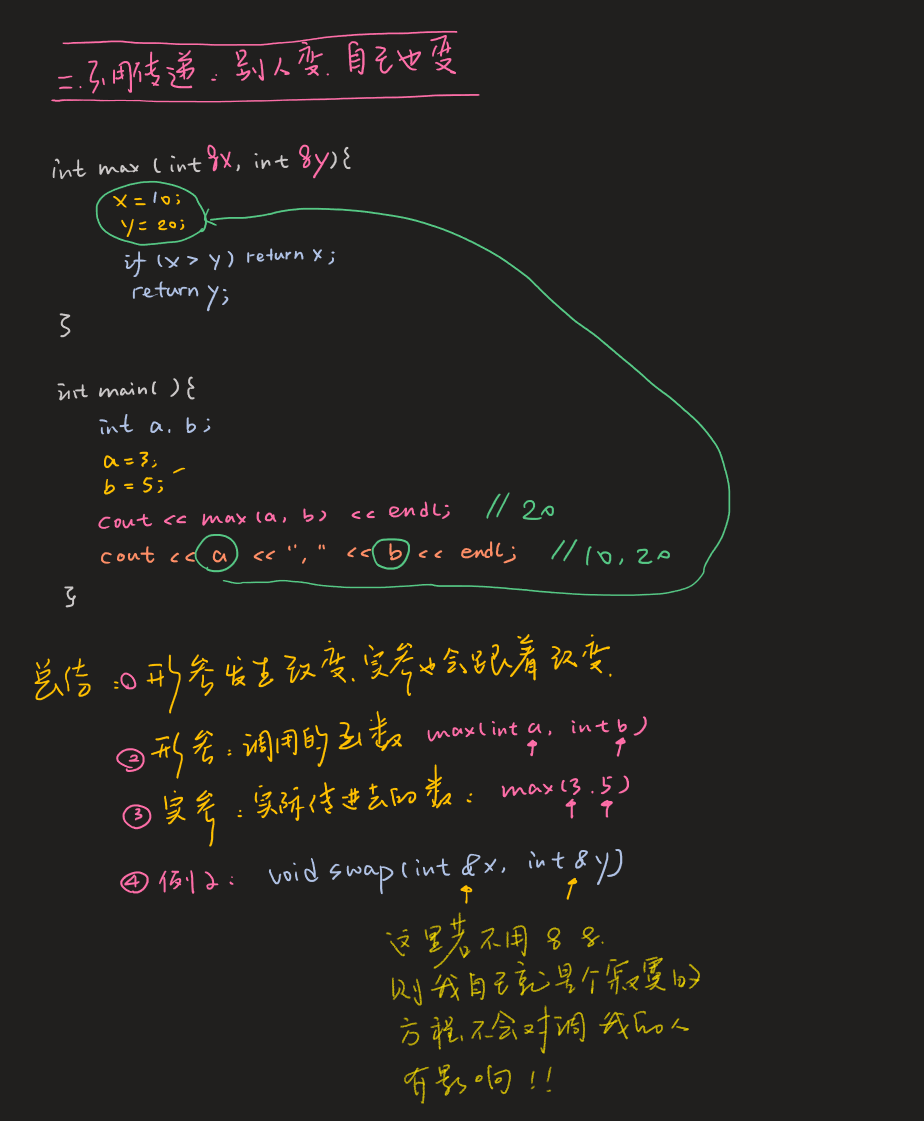 二.引用传递：别人变.自己也变
int max (int &x, int &y){
x = 10;
y = 20;
if (x > y) return x;
return y;
}
int main( ){
int a, b;
a = 3;
b = 5;
cout << max(a, b) << endl; // 20
cout << a << "," << b << endl; // 10, 20
}
总结：① 形参发生改变.实参也会跟着改变.
② 形参：调用的函数 max(int a, int b)
③ 实参：实际传进去的数：max(3.5)
④ 例2： void swap(int &x, int &y)
这里若不用 & &.
则我自己就是个寂寞的
方程,不会对调我的人
有影响!!